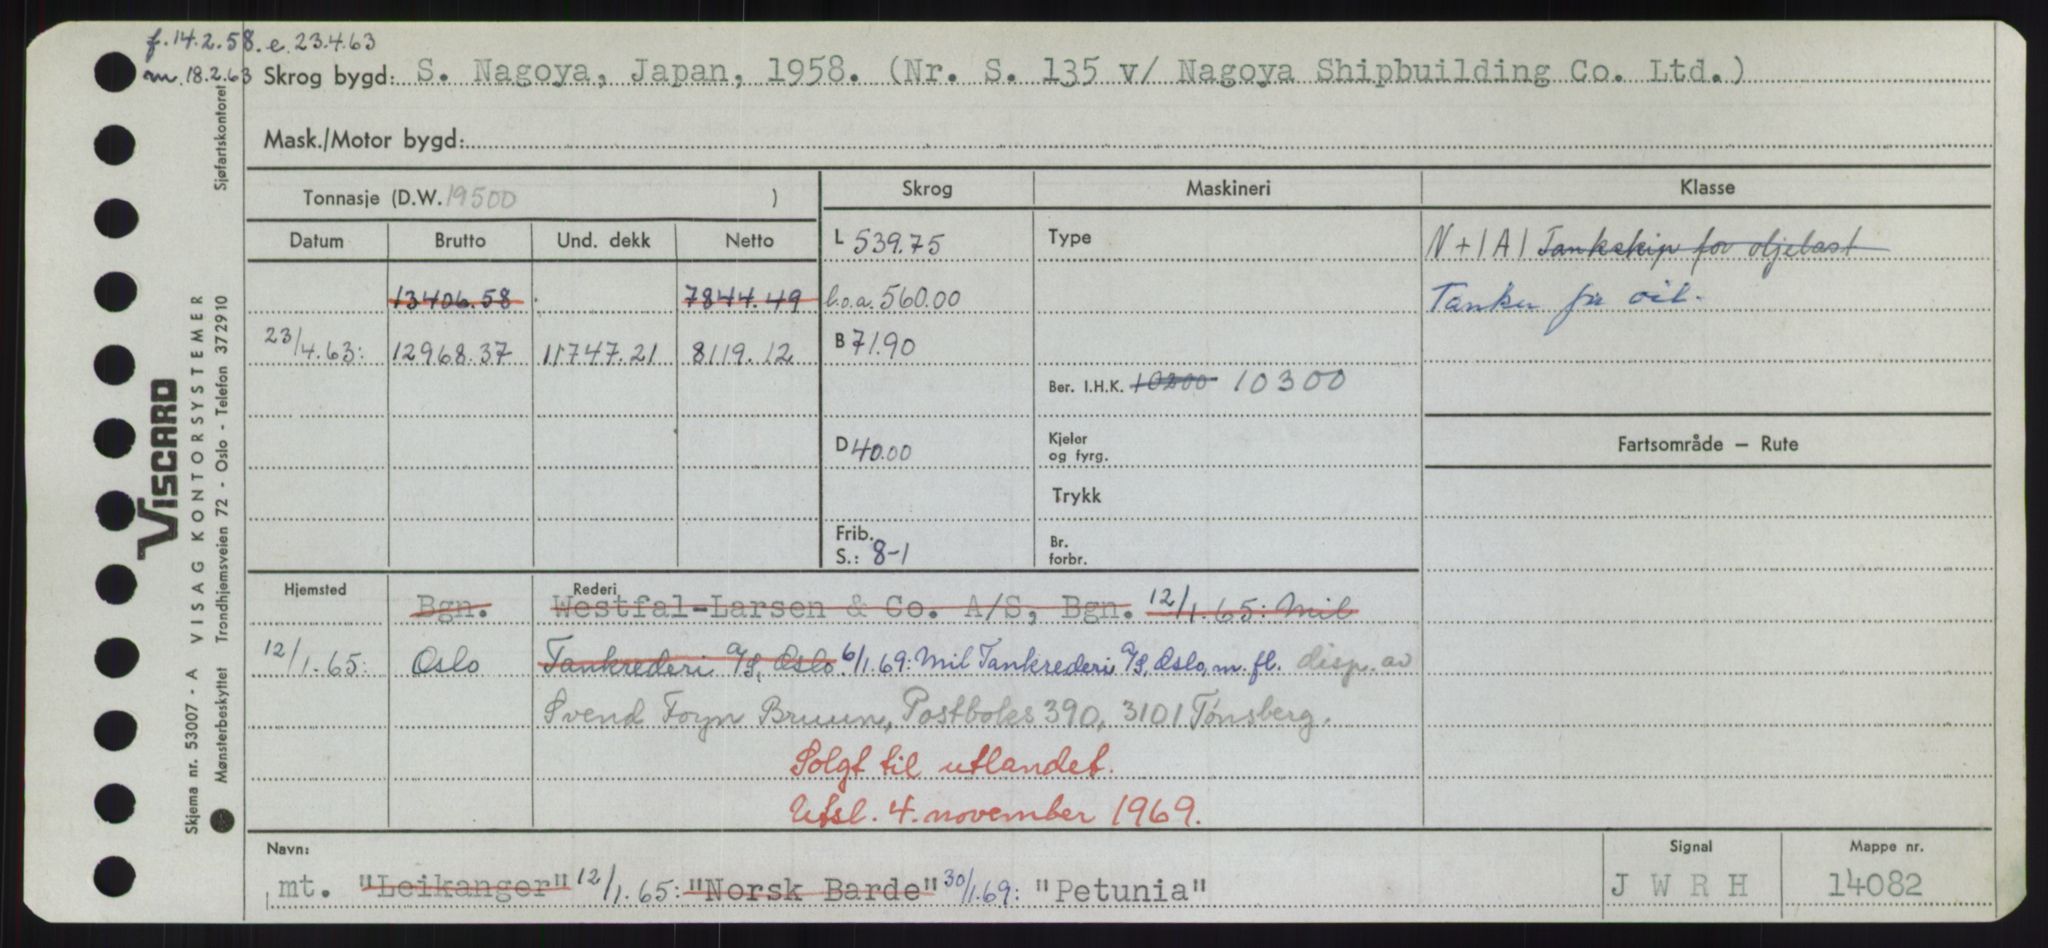 f. 14.2.58. e. 23.4.63
m. 18.2.63 Skrog bygd: S. Nagoya, Japan, 1958. (Nr. S. 135 v/ Nagoya Shipbuilding Co. Ltd.)
Mask./Motor bygd:
Tonnasje (D.W. 19500 )
Skrog Maskineri Klasse
Datum Brutto Und. dekk Netto
L 539.75 Type N + 1A1 Tankskip for oljelast
13406.58 7844.49 l.o.a. 560.00 Tanker for oil.
23/4.63: 12968.37 11747.21 8119.12 B 71.90
Ber. I.H.K. 10200 10300
D 40.00 Kjeler og fyrg. Fartsområde — Rute
Trykk
Frib. S.: 8-1 Br. forbr.
Hjemsted Rederi
Bgn. Westfal-Larsen & Co. A/S, Bgn. 12/1.65: Mil
12/1.65: Oslo Tankrederi A/S, Oslo. 6/1.69: Mil Tankrederi A/S, Oslo, m. fl. disp. av
Svend Foyn Bruun, Postboks 390, 3101 Tønsberg.
Solgt til utlandet.
Utsl. 4. november 1969.
Navn: Signal Mappe nr.
mt. "Leikanger" 12/1.65: "Norsk Barde" 30/1.69: "Petunia" J W R H 14082
VISCARD
Skjema nr. 53007 - A VISAG KONTORSYSTEMER
Mønsterbeskyttet Trondhjemsveien 72 - Oslo - Telefon 372910 Sjøfartskontoret